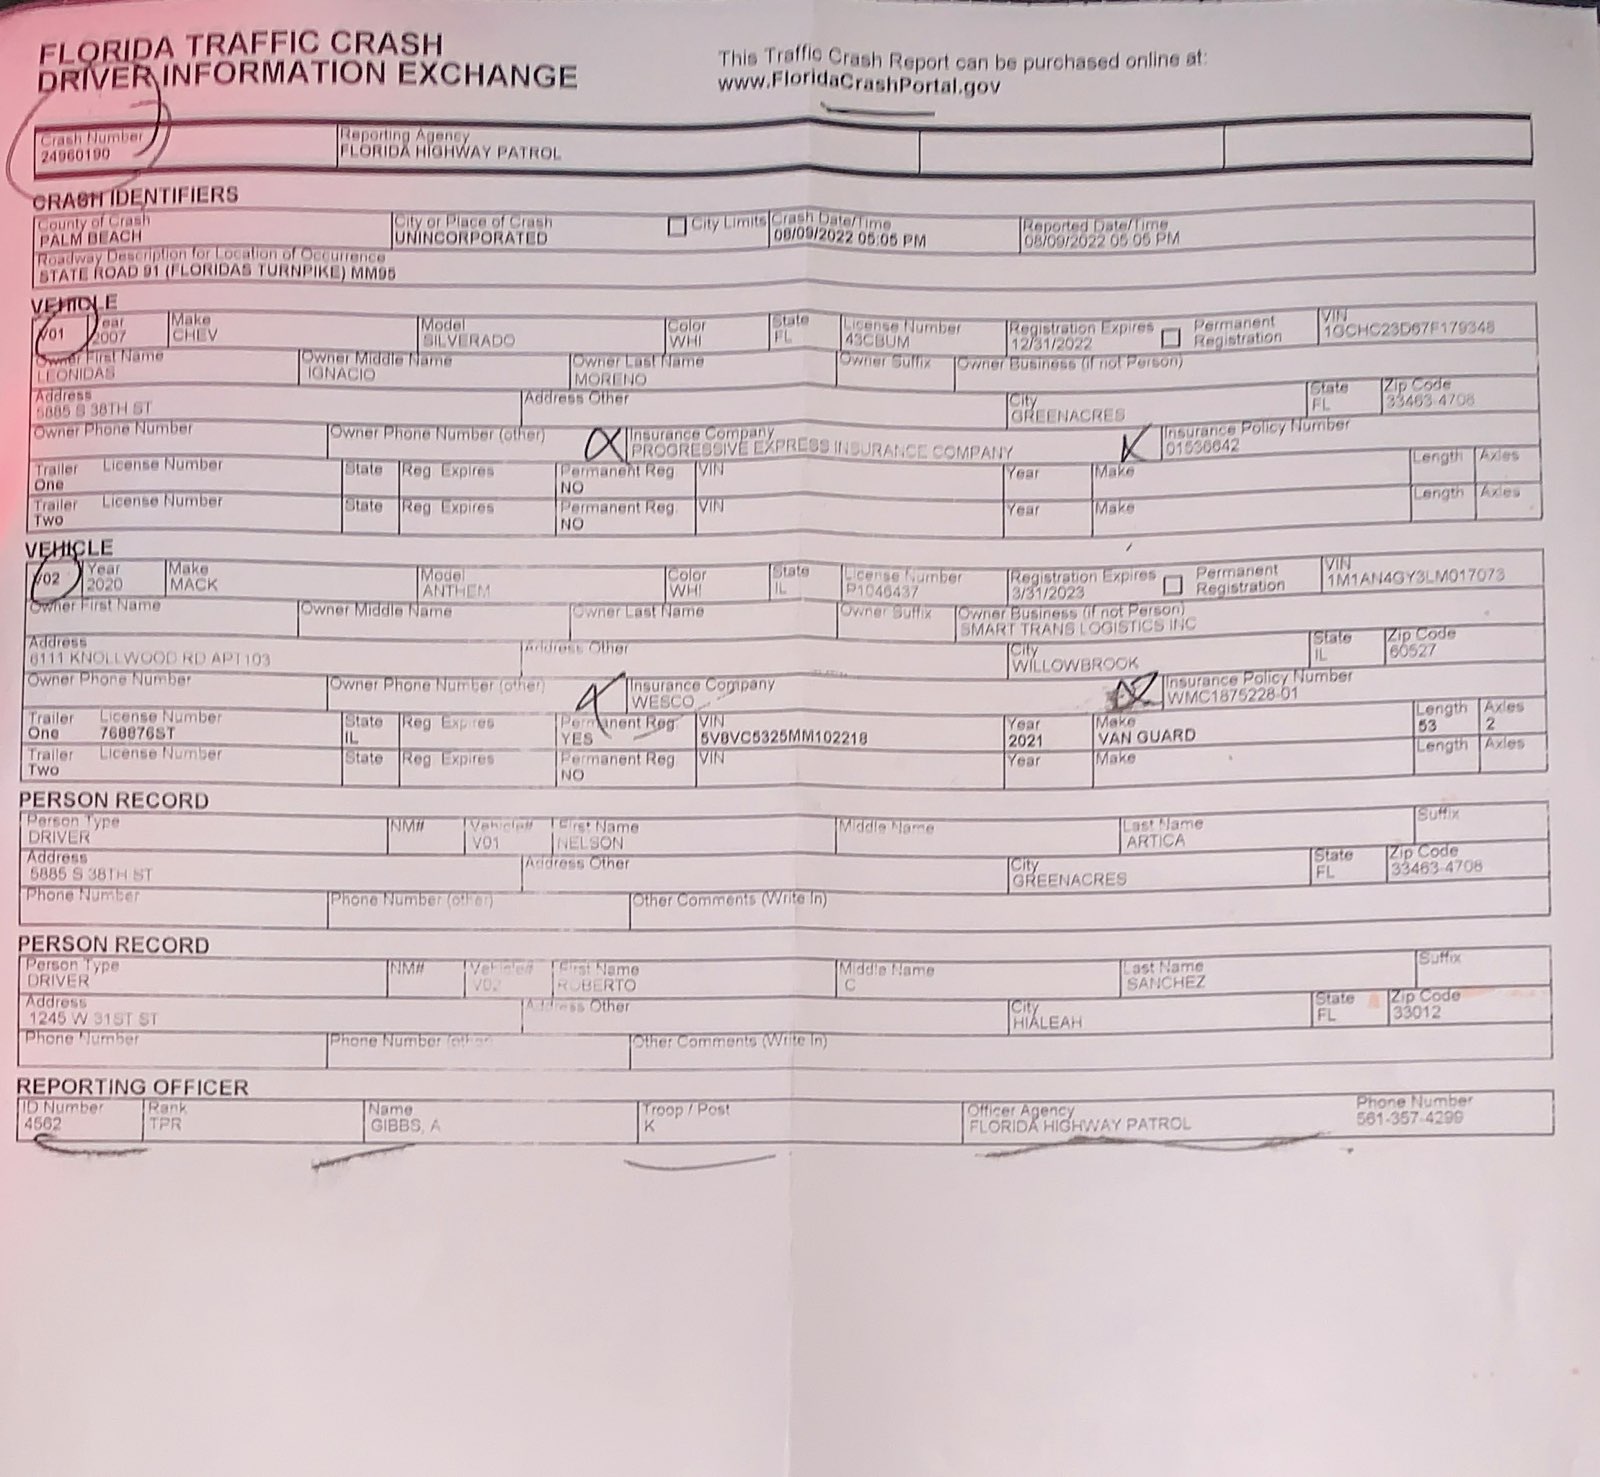 FLORIDA TRAFFIC CRASH
DRIVER INFORMATION EXCHANGE
This Traffic Crash Report can be purchased online at:
www.FloridaCrashPortal.gov
Crash Number Reporting Agency
24960190 FLORIDA HIGHWAY PATROL
CRASH IDENTIFIERS
County of Crash City or Place of Crash City Limits Crash Date/Time Reported Date/Time
PALM BEACH UNINCORPORATED 08/09/2022 05:05 PM 08/09/2022 05:05 PM
Roadway Description for Location of Occurrence
STATE ROAD 91 (FLORIDAS TURNPIKE) MM95
VEHICLE
V01 Year Make Model Color State License Number Registration Expires Permanent Registration VIN
2007 CHEV SILVERADO WHI FL 43CBUM 12/31/2022 1GCHC23D67F179348
Owner First Name Owner Middle Name Owner Last Name Owner Suffix Owner Business (if not Person)
LEONIDAS IGNACIO MORENO
Address Address Other City State Zip Code
5885 S 38TH ST GREENACRES FL 33463-4708
Owner Phone Number Owner Phone Number (other) Insurance Company Insurance Policy Number
PROGRESSIVE EXPRESS INSURANCE COMPANY 01536642
Trailer License Number State Reg Expires Permanent Reg VIN Year Make Length Axles
One NO
Trailer License Number State Reg Expires Permanent Reg VIN Year Make Length Axles
Two NO
VEHICLE
V02 Year Make Model Color State License Number Registration Expires Permanent Registration VIN
2020 MACK ANTHEM WHI IL P1046437 3/31/2023 1M1AN4GY3LM017073
Owner First Name Owner Middle Name Owner Last Name Owner Suffix Owner Business (if not Person)
SMART TRANS LOGISTICS INC
Address Address Other City State Zip Code
6111 KNOLLWOOD RD APT103 WILLOWBROOK IL 60527
Owner Phone Number Owner Phone Number (other) Insurance Company Insurance Policy Number
WESCO WMC1875228-01
Trailer License Number State Reg Expires Permanent Reg VIN Year Make Length Axles
One 768876ST IL YES 5V8VC5325MM102218 2021 VAN GUARD 53 2
Trailer License Number State Reg Expires Permanent Reg VIN Year Make Length Axles
Two NO
PERSON RECORD
Person Type NM# Vehicle# First Name Middle Name Last Name Suffix
DRIVER V01 NELSON ARTICA
Address Address Other City State Zip Code
5885 S 38TH ST GREENACRES FL 33463-4708
Phone Number Phone Number (other) Other Comments (Write In)
PERSON RECORD
Person Type NM# Vehicle# First Name Middle Name Last Name Suffix
DRIVER V02 ROBERTO C SANCHEZ
Address Address Other City State Zip Code
1245 W 31ST ST HIALEAH FL 33012
Phone Number Phone Number (other) Other Comments (Write In)
REPORTING OFFICER
ID Number Rank Name Troop / Post Officer Agency Phone Number
4562 TPR GIBBS, A K FLORIDA HIGHWAY PATROL 561-357-4299